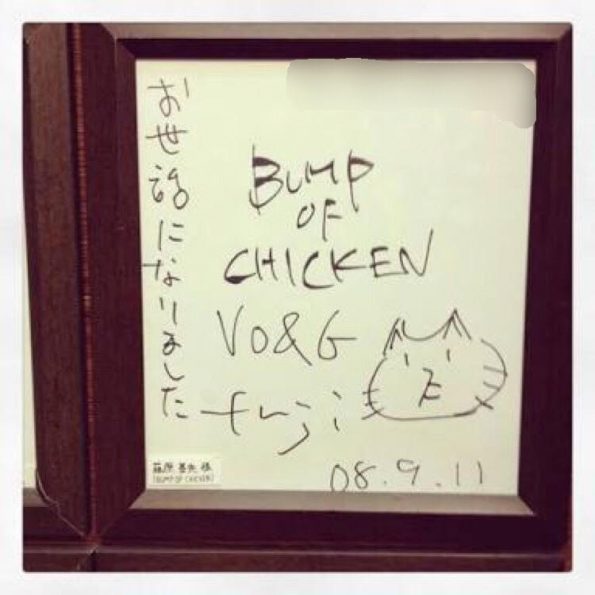 お世話になりました
BUMP
OF
CHICKEN
VO&G
fuji
08.9.11
藤原基央様
(BUMP OF CHICKEN)